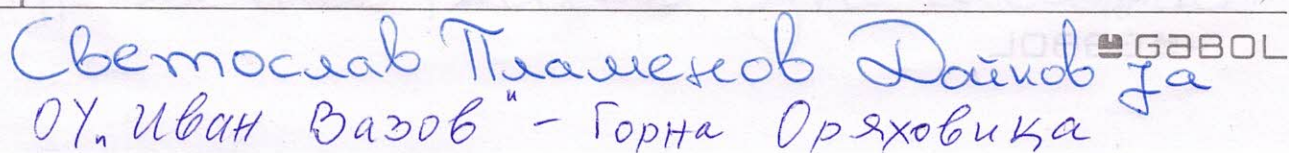 Светослав Пламенов Дойков 7а
GABOL
ОУ „Иван Вазов" - Горна Оряховица